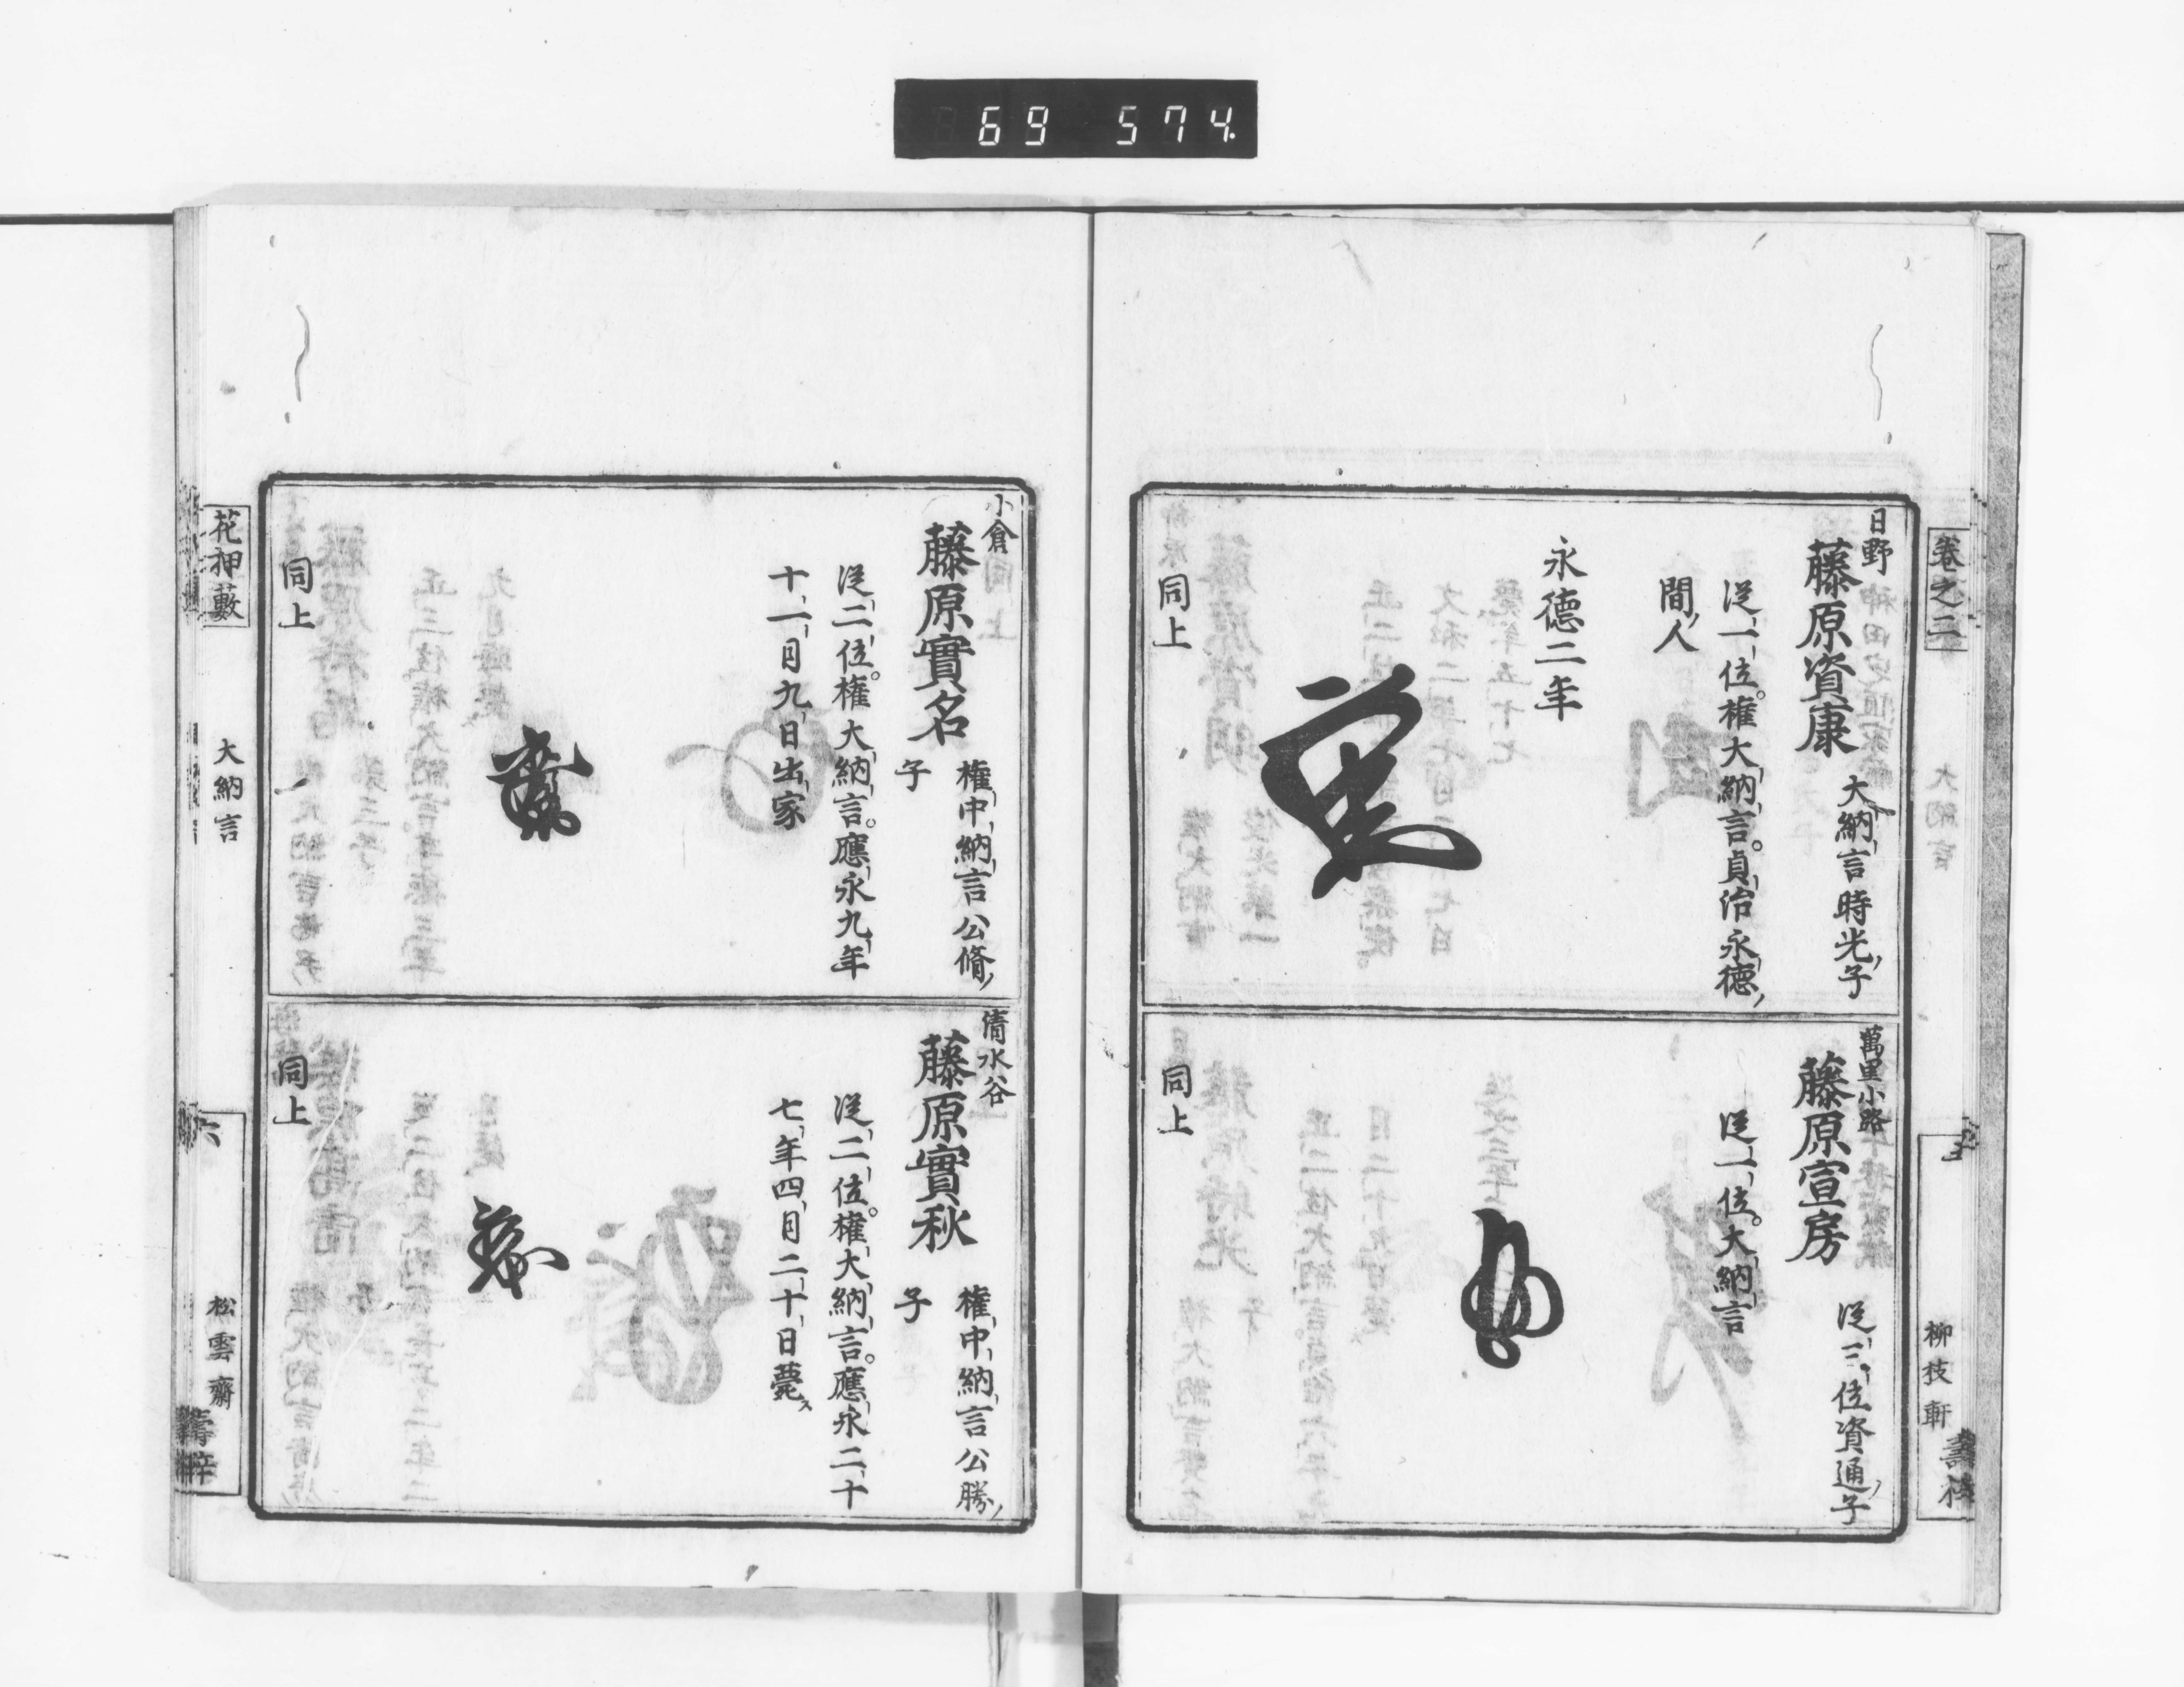 69 574
卷之二
大納言
五
柳枝軒
日野
藤原資康
大納言時光子
從一位。權大納言。貞治永德
間人
永德二年
同上
萬里小路
藤原宣房
從三位資通子
從一位。大納言
同上
小倉
藤原實名
權中納言公脩
子
從二位。權大納言。應永九年
十一月九日出家
同上
清水谷
藤原實秋
權中納言公勝
子
從二位。權大納言。應永二十
七年四月二十日薨ス
同上
花押藪
大納言
六
松雲齋